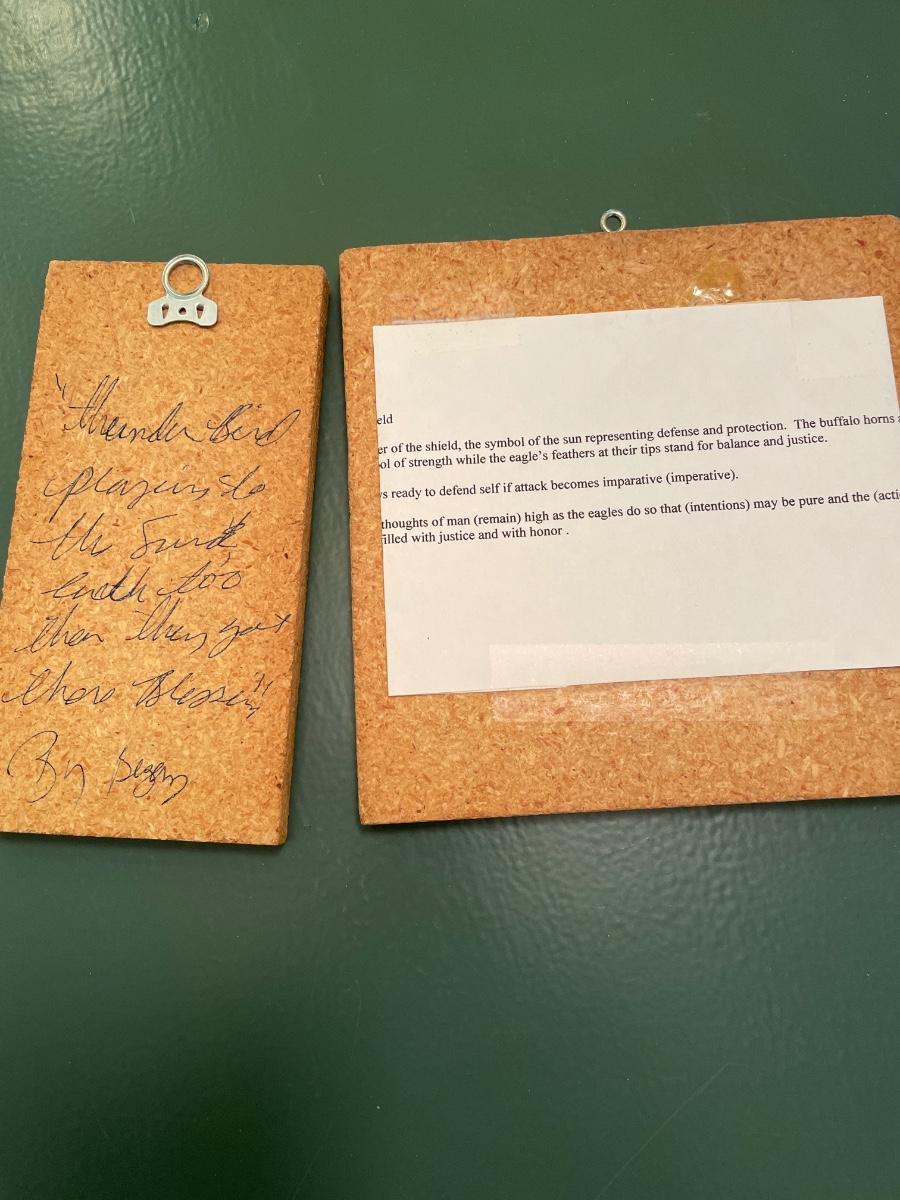 "Thunder Bird
praying to
the Sun &
earth too
then they get
there Blessing"
By
eld
er of the shield, the symbol of the sun representing defense and protection. The buffalo horns a
ol of strength while the eagle's feathers at their tips stand for balance and justice.
s ready to defend self if attack becomes imparative (imperative).
thoughts of man (remain) high as the eagles do so that (intentions) may be pure and the (acti
illed with justice and with honor .